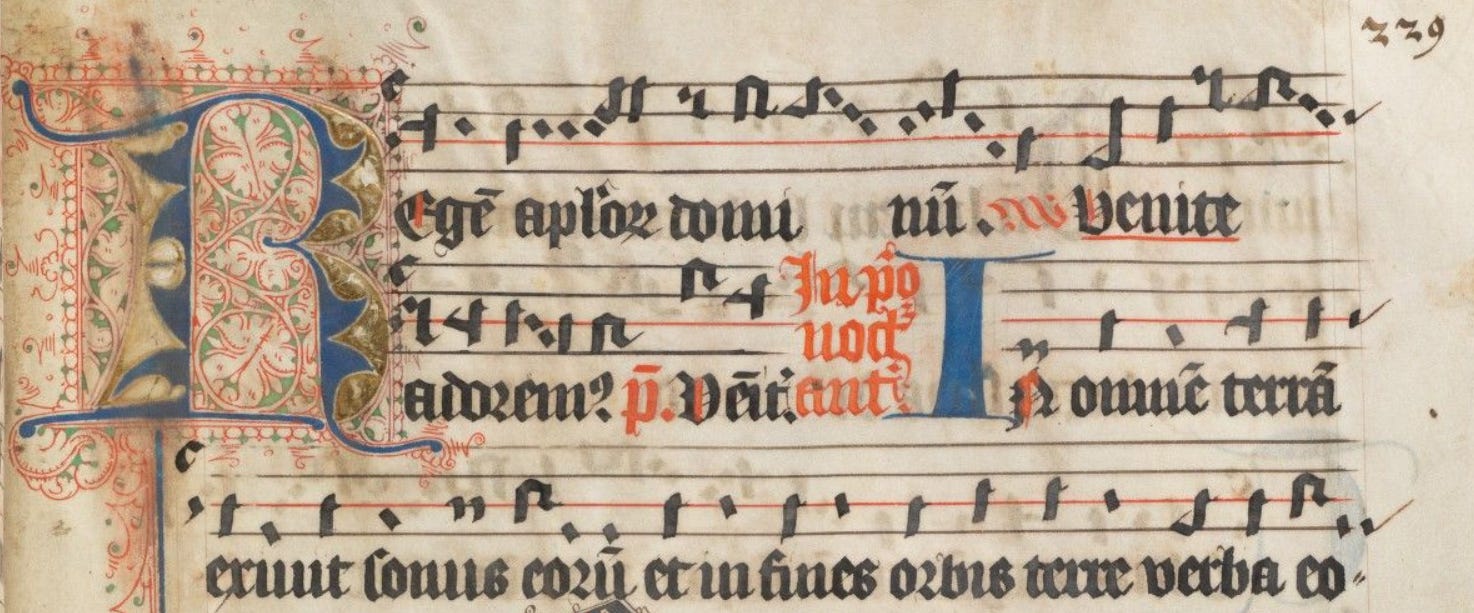 229
REgē aplōꝝ domi nū. Venite
adorem⁹ p̄. Vēit̾. In pͦo noct̾ ant̾. In omnē terrā
exiuit sonus eorū et in fines orbis terre verba eo-